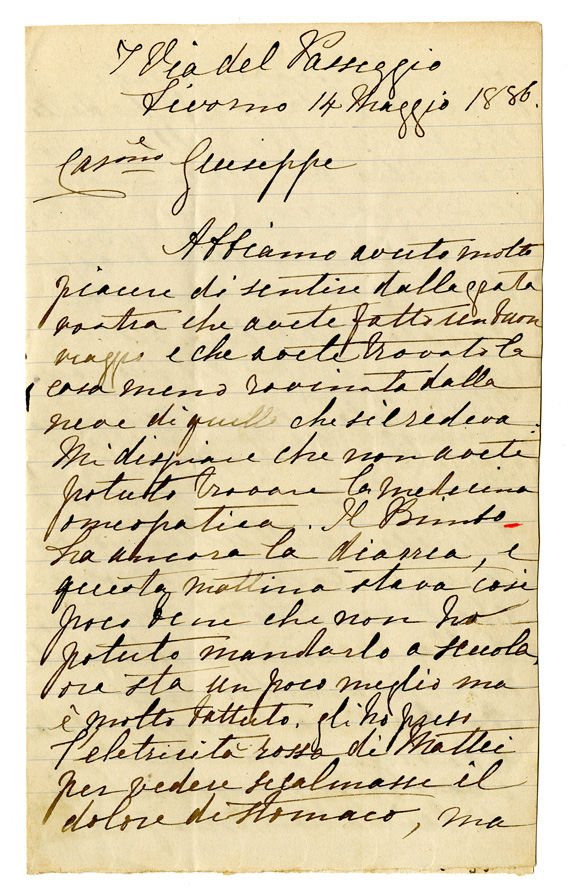 7 Via del Passeggio
Livorno 14 Maggio 1886.
Carmo Giuseppe
Abbiamo avuto molto
piacere di sentire dalla grata
vostra che avete fatto un buon
viaggio e che avete trovato la
casa meno rovinata dalla
neve di quello che si credeva.
Mi dispiace che non avete
potuto trovare la medicina
omeopatica. Il Bimbo
ha ancora la diarrea, e
questa mattina stava così
poco bene che non ho
potuto mandarlo a scuola,
ora sta un poco meglio ma
è molto battuto. gli ho preso
l'eletricità rossa di Mattei
per vedere se calmasse il
dolore di stomaco, ma